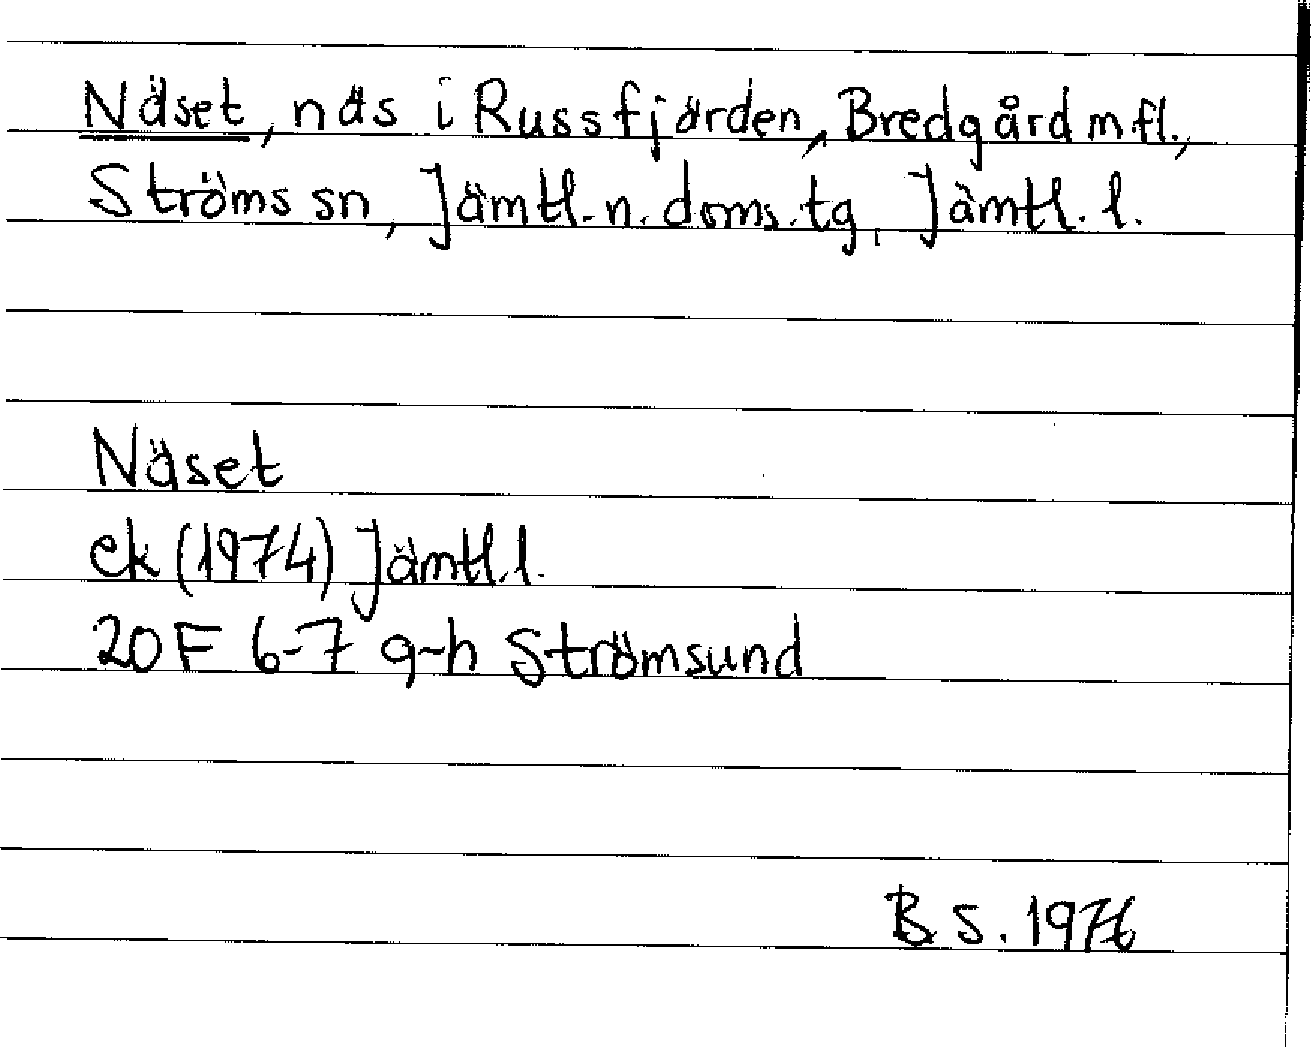 Näset, näs i Russfjärden, Bredgård m fl.,
Ströms sn, Jämtl. n. doms. tg, Jämtl. l.
Näset
ek (1974) Jämtl. l.
20 F 6-7 g-h Strömsund
B S. 1976